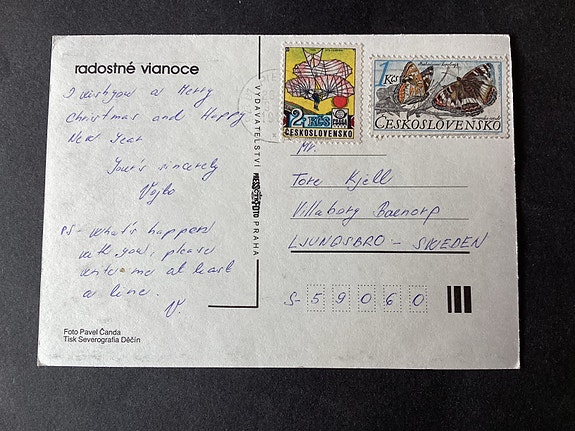 radostné vianoce
I wish you a Merry
christmas and Happy
New Year
Your's sincerely
Vojto
PS - what's happen
with you, please
write me at least
a line.
V.
Foto Pavel Čanda
Tisk Severografia Děčín
VYDAVATELSTVÍ
PRESSFOTO
PRAHA
2 Kčs
ČESKOSLOVENSKO
1 Kčs
ČESKOSLOVENSKO
Mr.
Tore Kjell
Villaborg Baenorp
LJUNGSBRO - SWEDEN
S- 59060